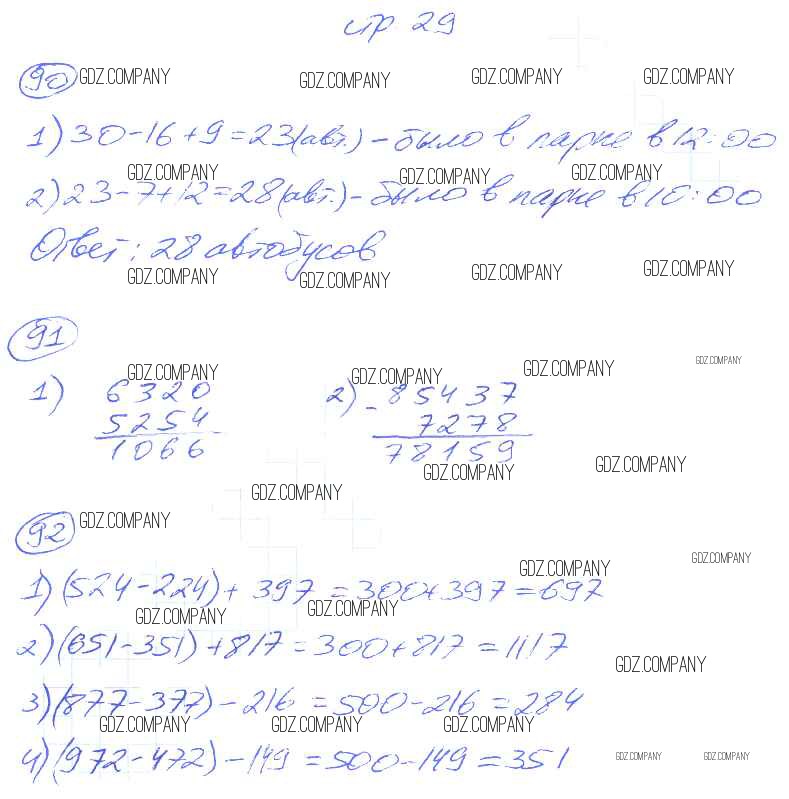 стр 29
90 GDZ.COMPANY GDZ.COMPANY GDZ.COMPANY GDZ.COMPANY
1) 30-16+9=23(авт.) - было в парке в 12:00
GDZ.COMPANY GDZ.COMPANY GDZ.COMPANY
2) 23-7+12=28(авт.) - было в парке в 10:00
Ответ: 28 автобусов
GDZ.COMPANY GDZ.COMPANY GDZ.COMPANY GDZ.COMPANY
91
GDZ.COMPANY GDZ.COMPANY GDZ.COMPANY GDZ.COMPANY
1) 6320 2) - 85437
5254 7278
1066 78159
GDZ.COMPANY GDZ.COMPANY
GDZ.COMPANY
92 GDZ.COMPANY
GDZ.COMPANY GDZ.COMPANY
1) (524-224)+397=300+397=697
GDZ.COMPANY GDZ.COMPANY
2) (651-351)+817=300+817=1117
GDZ.COMPANY
3) (877-377)-216=500-216=284
GDZ.COMPANY GDZ.COMPANY GDZ.COMPANY
4) (972-472)-149=500-149=351
GDZ.COMPANY GDZ.COMPANY